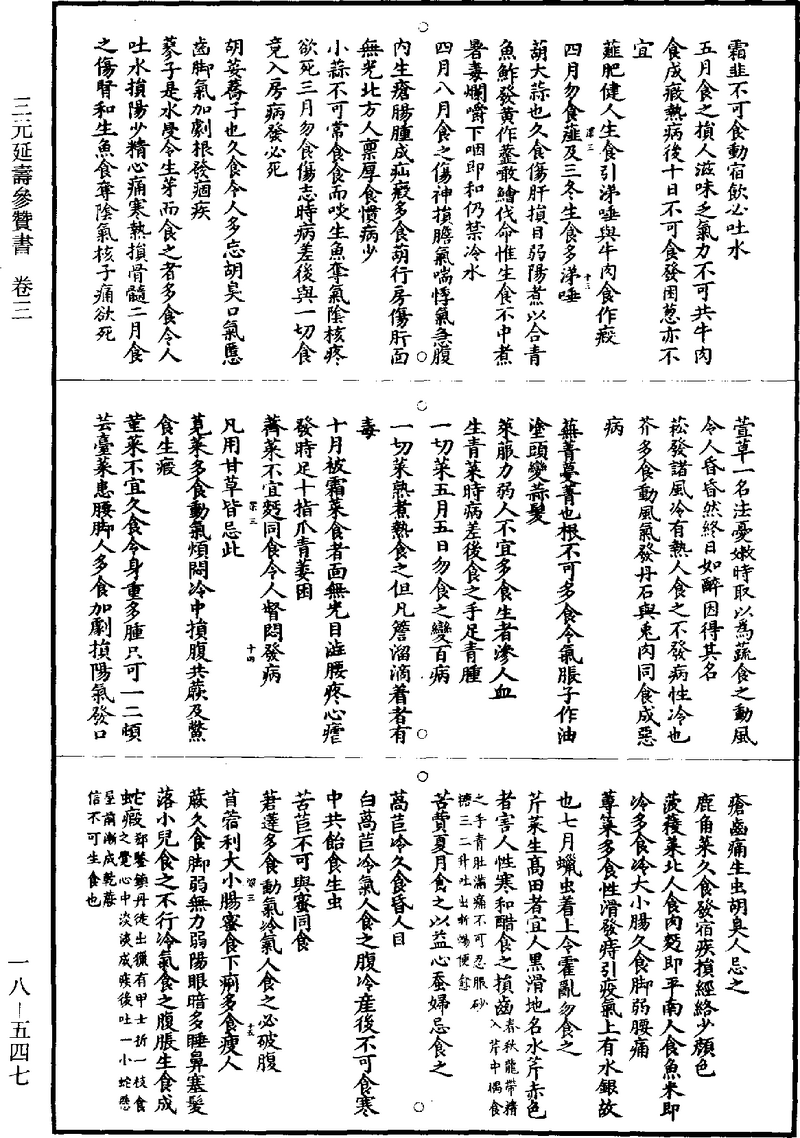 三元延壽參贊書　卷三
霜韭不可食動宿飲必吐水
五月食之損人滋味乏氣力不可共牛肉
食成癥熱病後十日不可食發困蔥亦不
宜
薤肥健人生食引涕唾與牛肉食作癥
深三
四月勿食薤及三冬生食多涕唾
十三
葫大蒜也久食傷肝損目弱陽煮以合青
魚鮓發黃作虀啖鱠伐命惟生食不中煮
暑毒爛嚼下咽即和仍禁冷水
四月八月食之傷神損膽氣喘悸氣急腹
內生瘡腸腫成疝瘕多食葫行房傷肝面
無光北方人稟厚食慣病少
小蒜不可常食食而啖生魚奪氣陰核疼
欲死三月勿食傷志時病差後與一切食
竟入房病發必死
胡荽蒝子也久食令人多忘胡臭口氣䘌
齒脚氣加劇根發痼疾
蓼子是水浸令生芽而食之者多食令人
吐水損陽少精心痛寒熱損骨髓二月食
之傷腎和生魚食奪陰氣核子痛欲死
萱草一名法憂嫩時取以為蔬食之動風
令人昏昏然終日如醉因得其名
菘發諸風冷有熱人食之不發病性冷也
芥多食動風氣發丹石與兎肉同食成惡
病
蕪菁蔓菁也根不可多食令氣脹子作油
塗頭變蒜髮
萊菔力弱人不宜多食生者滲人血
生青菜時病差後食之手足青腫
一切菜五月五日勿食之變百病
一切菜熟煮熱食之但凡簷溜滴着者有
毒
十月被霜菜食者面無光目澁腰疼心瘧
發時足十指爪青萎困
薺菜不宜麪同食令人督悶發病
深三
凡用甘草皆忌此
十四
莧菜多食動氣煩悶冷中損腹共蕨及鱉
食生瘕
堇菜不宜久食令身重多腫只可一二頓
芸臺菜患腰脚人多食加劇損陽氣發口
瘡齒痛生虫胡臭人忌之
鹿角菜久食發宿疾損經絡少顏色
菠薐菜北人食肉麪即平南人食魚米即
冷多食冷大小腸久食脚弱腰痛
蓴菜多食性滑發痔引疫氣上有水銀故
也七月蠟虫着上令霍亂勿食之
芹菜生高田者宜人黑滑地名水芹赤色
者害人性寒和醋食之損齒春秋龍帶精
入芹中偶食
之手青肚滿痛不可忍服砂
糖三二升吐出蜥蜴便愈
苦蕒夏月食之以益心蚕婦忌食之
萵苣冷久食昏人目
白萵苣冷氣人食之腹冷產後不可食寒
中共飴食生虫
苦苣不可與蜜同食
莙薘多食動氣冷氣人食之必破腹
深三
苜蓿利大小腸蜜食下痢多食瘦人
十五
蕨久食脚弱無力弱陽眼暗多睡鼻塞髮
落小兒食之不行冷氣食之腹脹生食成
蛇瘕郄鑒鎮丹徒出獵有甲士折一枝食
之覺心中淡淡成疾後吐一小蛇懸
屋前漸成乾蕨
信不可生食也
一八－五四七